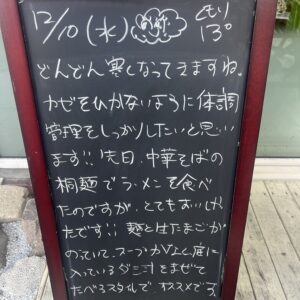 12/10(水) くもり
13°
どんどん寒くなってきますね。
カゼをひかないように体調
管理をしっかりしたいと思い
ます!!先日、中華そばの
桐麺でラーメンを食べ
たのですが、とてもおいしかっ
たです!!麺と生たまごが
のっていて、スープがなく、底に
入っているダシ汁をまぜて
たべるスタイルで、オススメです